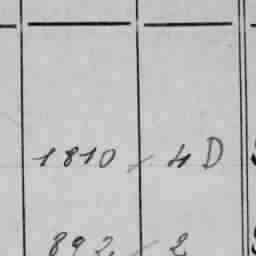 1810 / 4 D
892 / 2